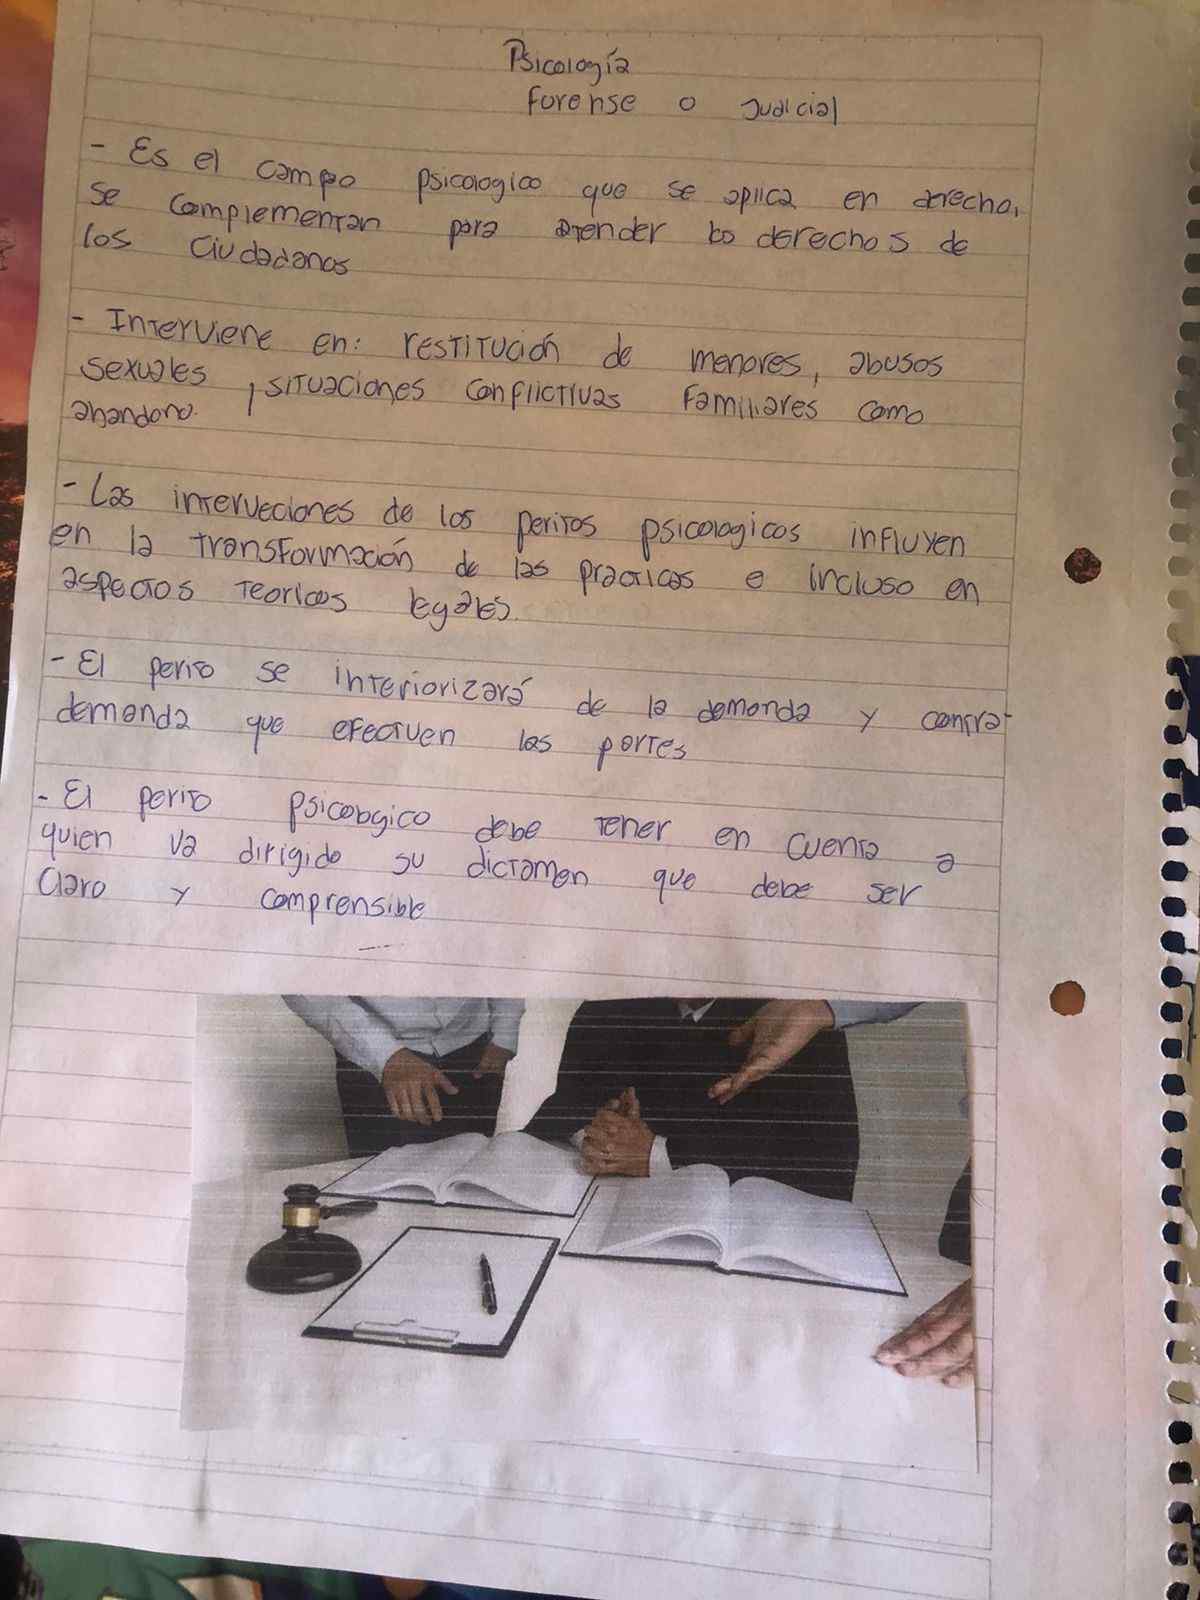 Psicología
forense o Judicial
- Es el campo psicologico que se aplica en derecho,
se complementan para atender los derechos de
los ciudadanos
- Interviene en: restitución de menores, abusos
sexuales, situaciones conflictivas familiares como
abandono.
- Las interveciones de los peritos psicologicos influyen
en la transformación de las practicas e incluso en
aspectos teoricos legales.
- El perito se interiorizará de la demanda y contra-
demanda que efectuen las partes
- El perito psicologico debe tener en cuenta a
quien va dirigido su dictamen que debe ser
Claro y comprensible